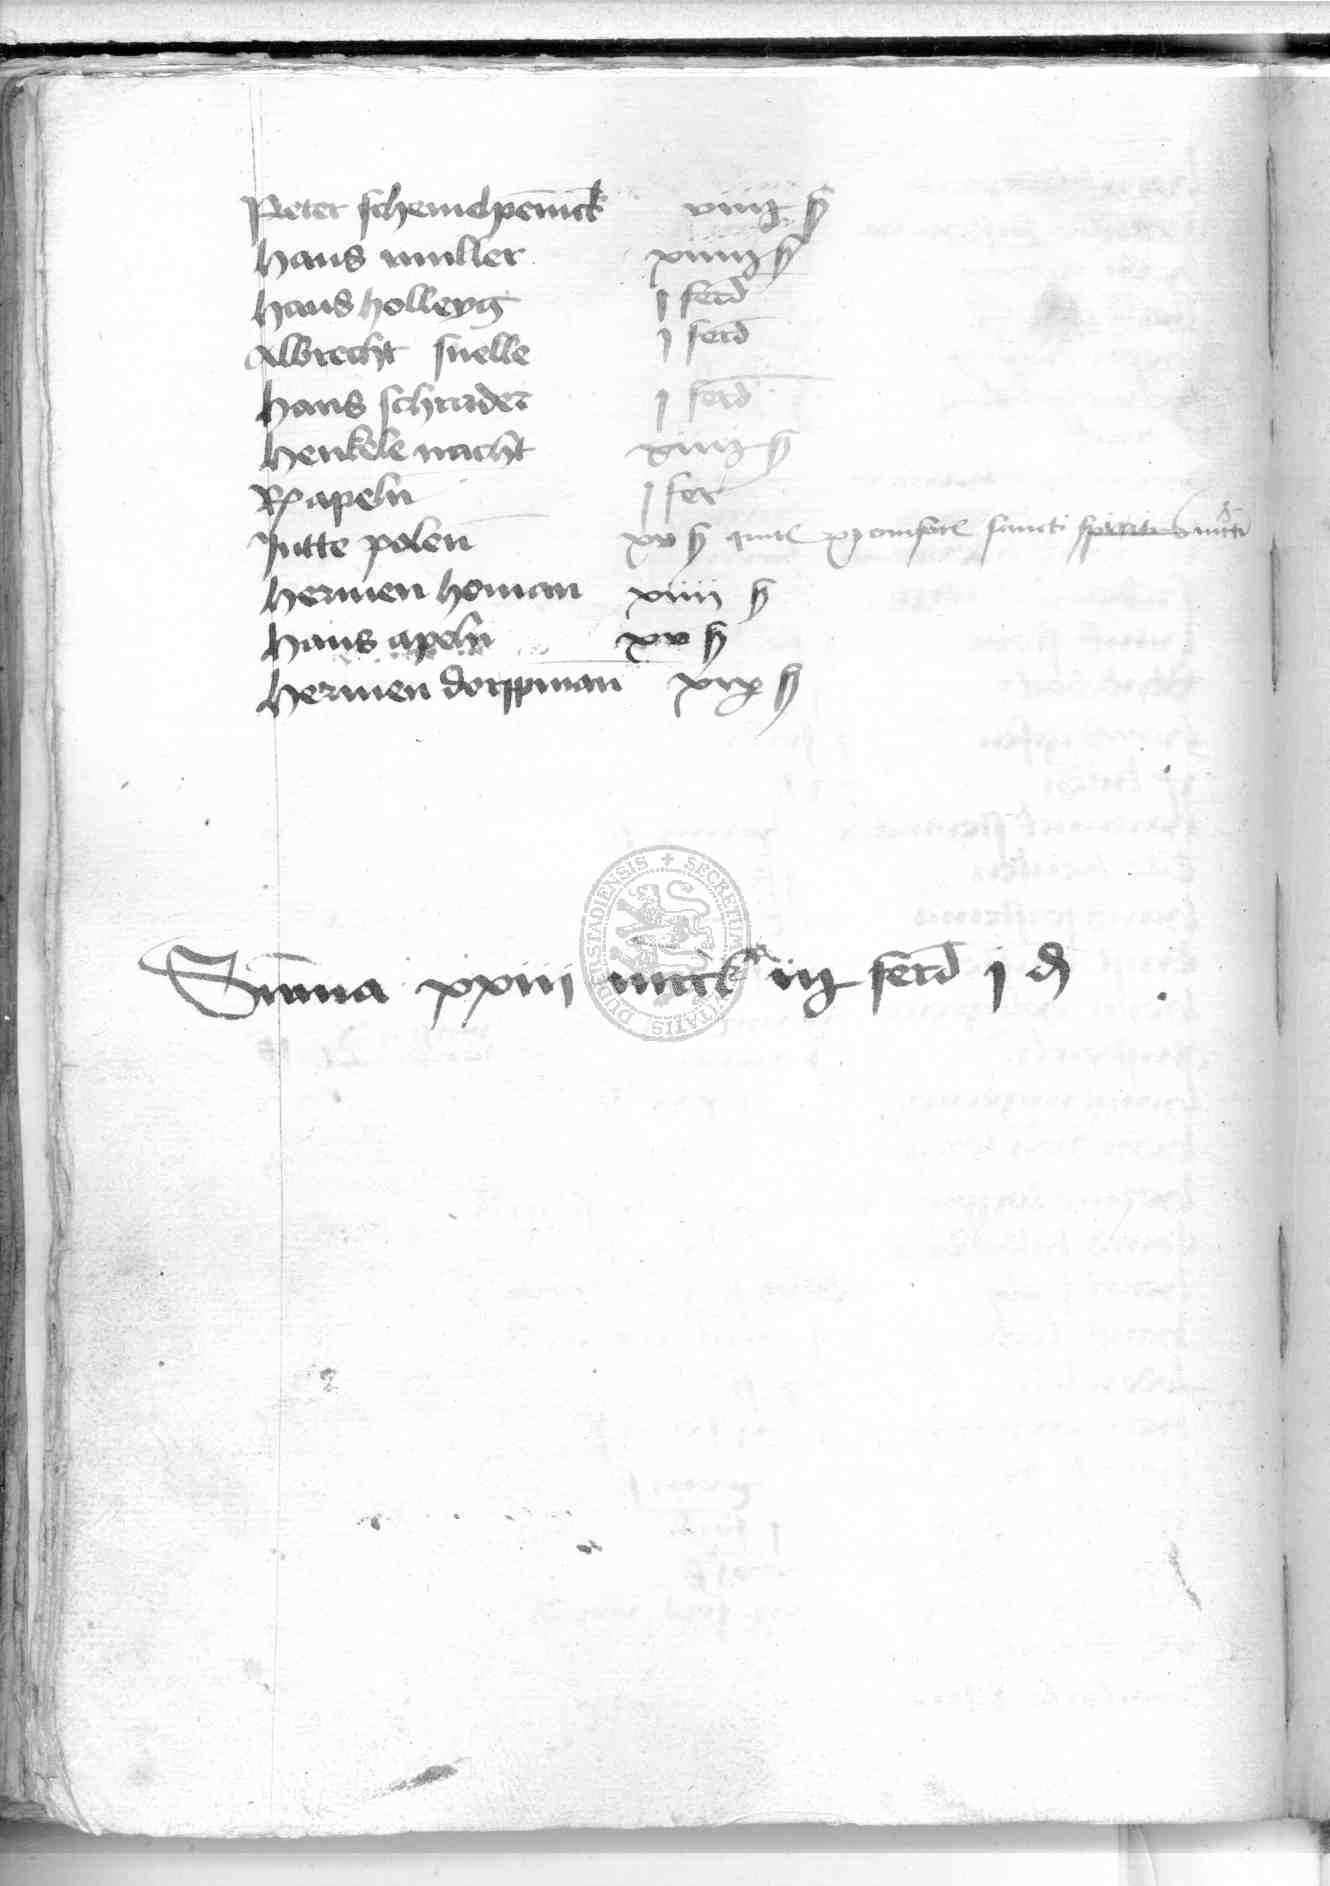 Peter schenchpennick viiij ß
Hans muller xiiiij ß
Hans holleyg j ferd
Albrecht snelle j ferd
Hans schrader j ferd
Henkele nacht xiiij ß
apeln j fer
Jutte polen xv ß sancti
Hermen homan xiiii ß
Hans apeln xv ß
Hermen dorppman ß
Summa xxiii marck iij ferd j d
SECRETUM DUDERSTADIENSIS